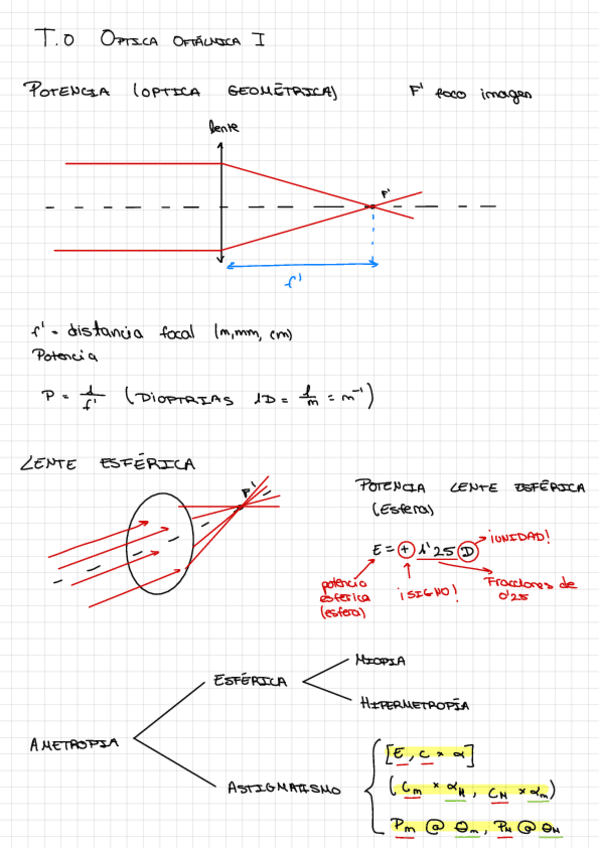 T.0 OPTICA OFTÁLMICA I
POTENCIA (OPTICA GEOMÉTRICA) F' foco imagen
lente
F'
f'
f' = distancia focal (m, mm, cm)
Potencia
P = 1/f' (DIOPTRIAS 1D = 1/m = m⁻¹)
LENTE ESFÉRICA
F'
POTENCIA LENTE ESFÉRICA
(Esfera)
E = + 1'25 D
¡UNIDAD!
potencia
esférica
(esfera)
¡SIGNO!
Fracciones de
0'25
AMETROPIA
ESFÉRICA
MIOPIA
HIPERMETROPÍA
ASTIGMATISMO
[E, C × α]
(Cm × αM, CM × αm)
Pm @ θm, PM @ θM